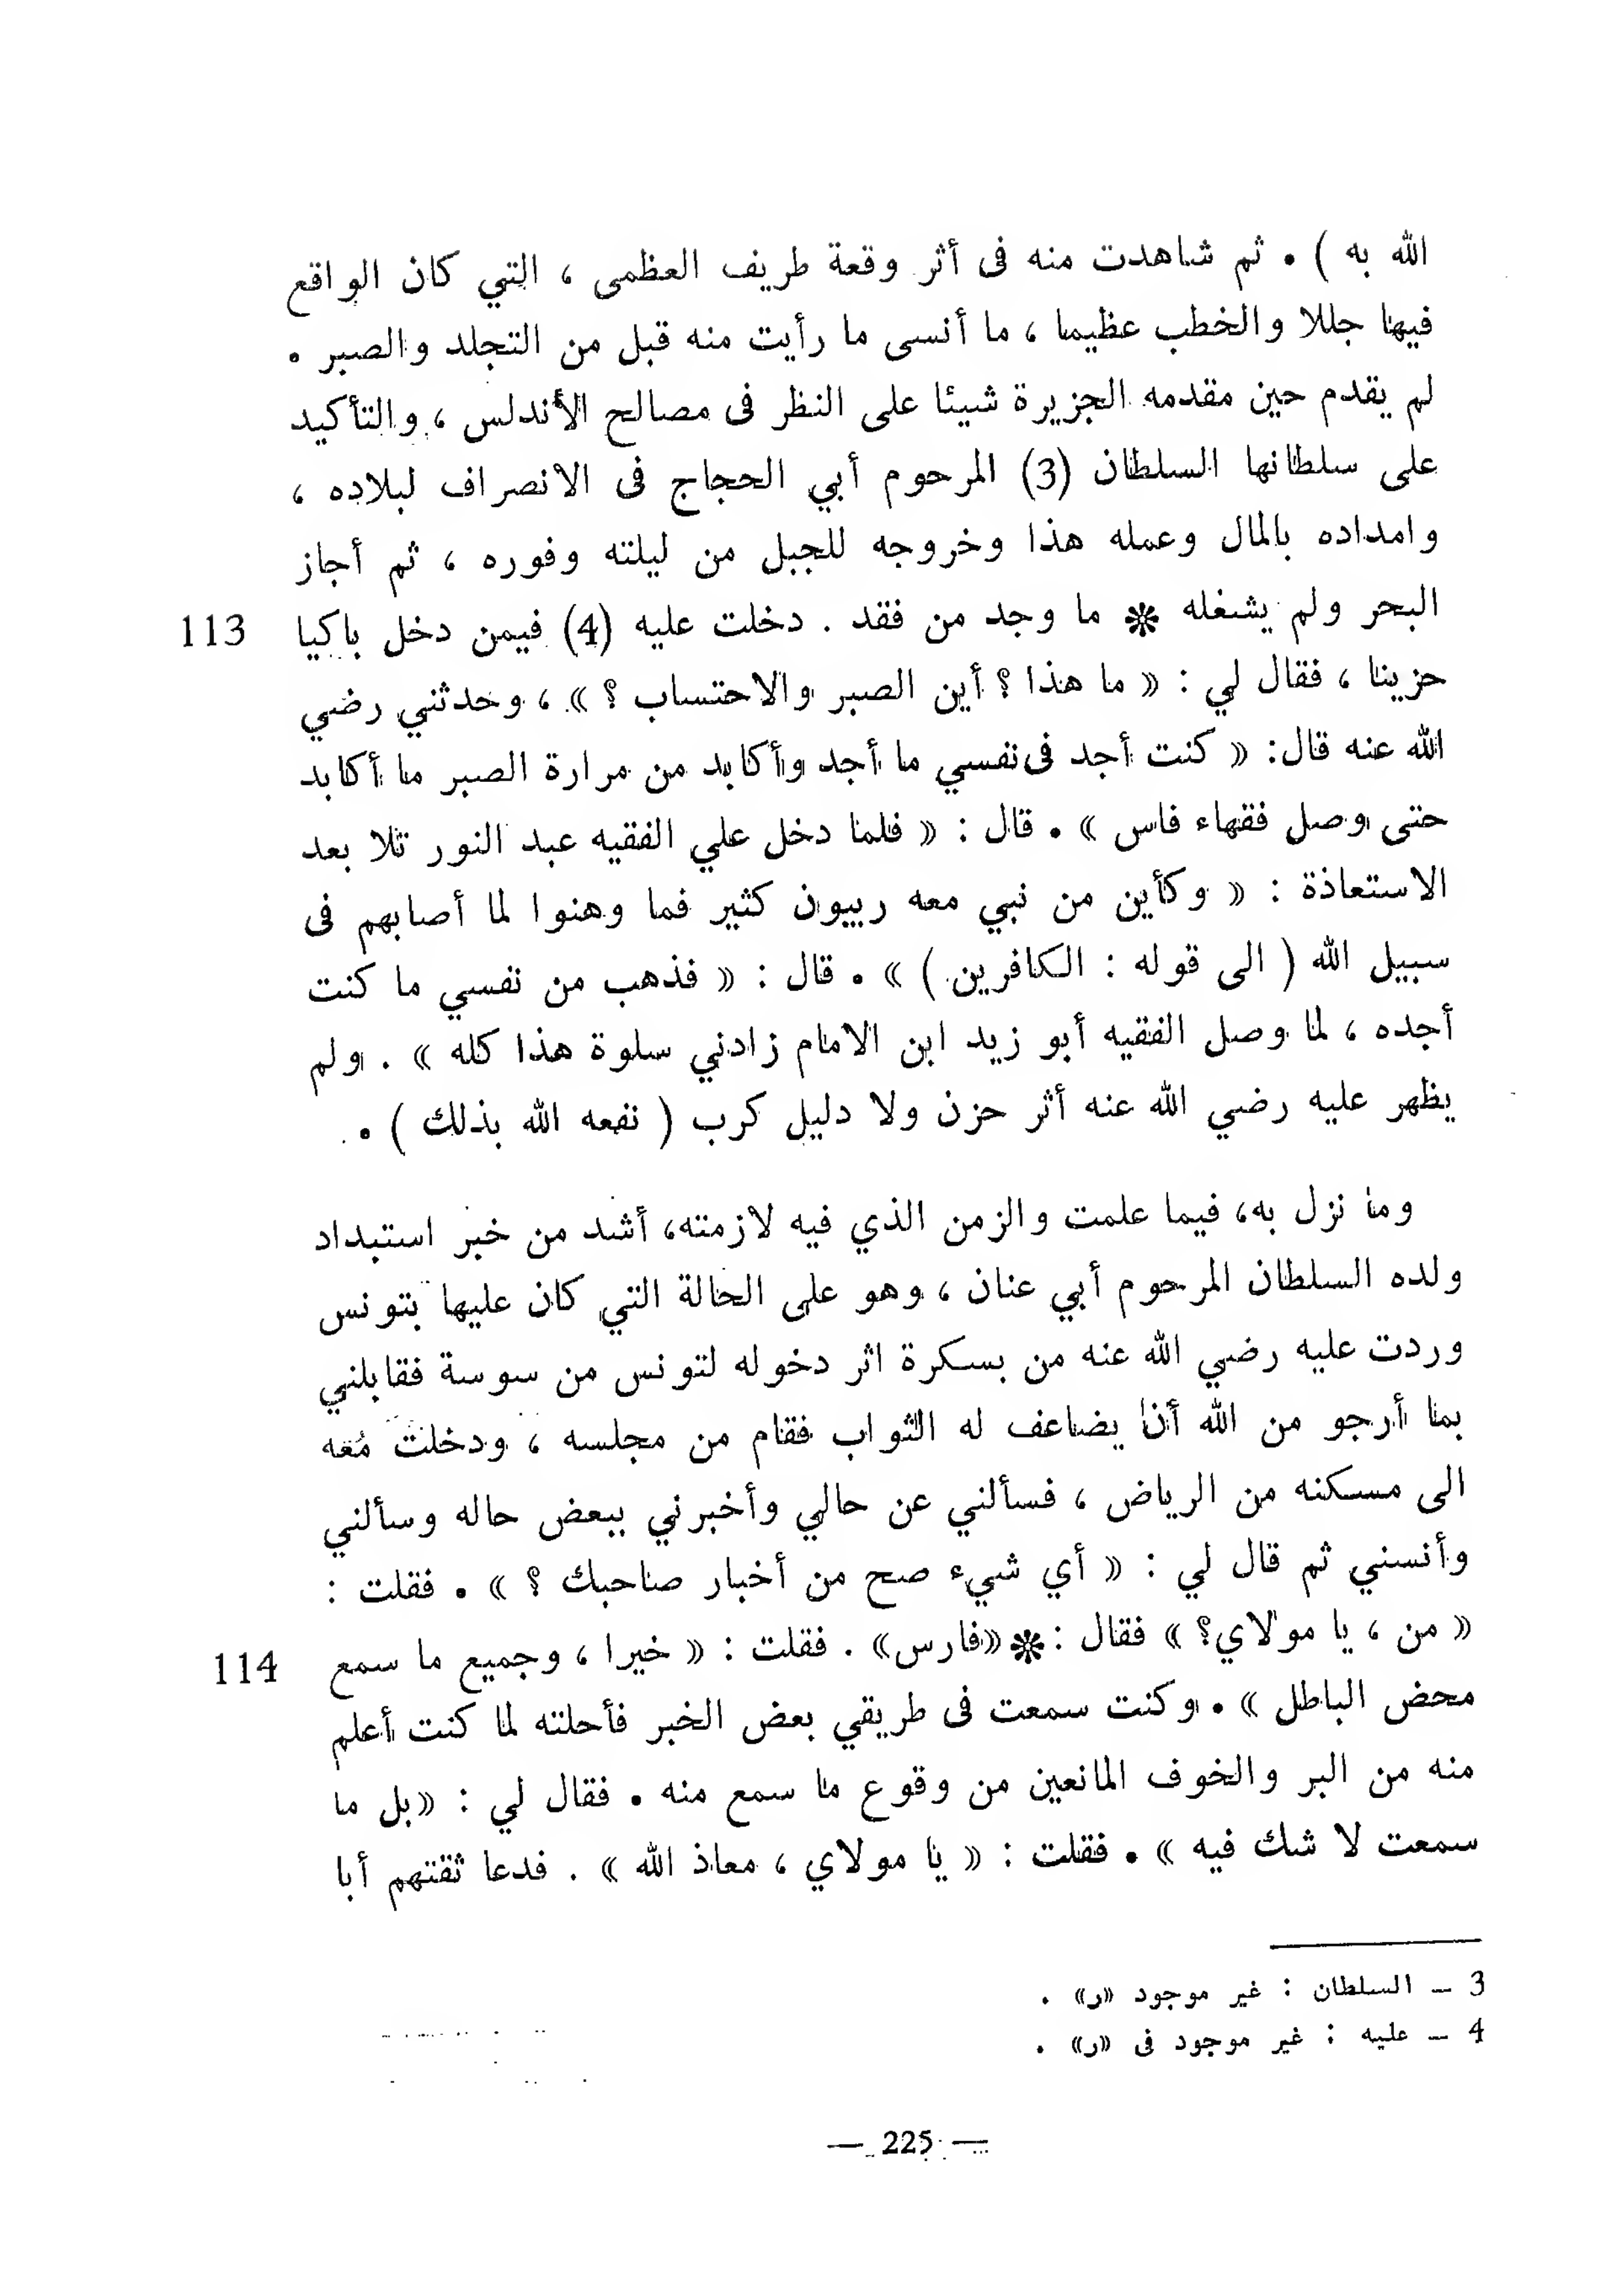 الله به ) . ثم شاهدت منه فى أثر وقعة طريف العظمى ، التي كان الواقع
فيها جللا والخطب عظيما ، ما أنسى ما رأيت منه قبل من التجلد والصبر .
لم يقدم حين مقدمه الجزيرة شيئا على النظر فى مصالح الأندلس ، والتأكيد
على سلطانها السلطان (3) المرحوم أبي الحجاج فى الانصراف لبلاده ،
وامداده بالمال وعمله هذا وخروجه للجبل من ليلته وفوره ، ثم أجاز
البحر ولم يشغله * ما وجد من فقد . دخلت عليه (4) فيمن دخل باكيا 113
حزينا ، فقال لي : « ما هذا ؟ أين الصبر والاحتساب ؟ » ، وحدثني رضي
الله عنه قال: « كنت أجد فى نفسي ما أجد وأكابد من مرارة الصبر ما أكابد
حتى وصل فقهاء فاس » . قال : « فلما دخل علي الفقيه عبد النور تلا بعد
الاستعاذة : « وكأين من نبي معه ربيون كثير فما وهنوا لما أصابهم فى
سبيل الله ( الى قوله : الكافرين ) » . قال : « فذهب من نفسي ما كنت
أجده ، لما وصل الفقيه أبو زيد ابن الامام زادني سلوة هذا كله » . ولم
يظهر عليه رضي الله عنه أثر حزن ولا دليل كرب ( نفعه الله بذلك ) .
وما نزل به، فيما علمت والزمن الذي فيه لازمته، أشد من خبر استبداد
ولده السلطان المرحوم أبي عنان ، وهو على الحالة التي كان عليها بتونس
وردت عليه رضي الله عنه من بسكرة اثر دخوله لتونس من سوسة فقابلني
بما أرجو من الله أن يضاعف له الثواب فقام من مجلسه ، ودخلت معه
الى مسكنه من الرياض ، فسألني عن حالي وأخبرني ببعض حاله وسألني
وأنسني ثم قال لي : « أي شيء صح من أخبار صاحبك ؟ » . فقلت :
« من ، يا مولاي؟ » فقال : * «فارس» . فقلت : « خيرا ، وجميع ما سمع 114
محض الباطل » . وكنت سمعت فى طريقي بعض الخبر فأحلته لما كنت أعلم
منه من البر والخوف المانعين من وقوع ما سمع منه . فقال لي : «بل ما
سمعت لا شك فيه » . فقلت : « يا مولاي ، معاذ الله » . فدعا ثقتهم أبا
3 ـ السلطان : غير موجود «ر» .
4 ـ عليه : غير موجود فى «ر» .
— 225 —